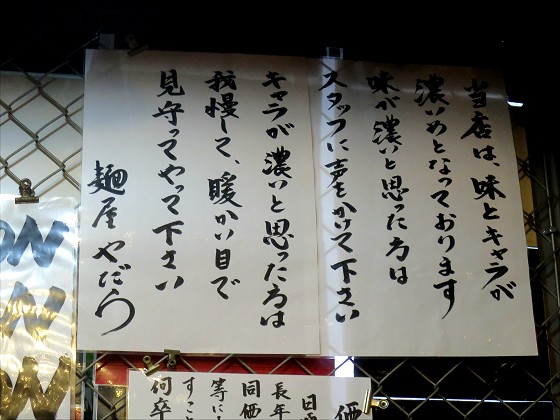 当店は、味とキャラが
濃いめとなっております
味が濃いと思った方は
スタッフに声をかけて下さい
キャラが濃いと思った方は
我慢して、暖かい目で
見守ってやって下さい
麺屋 やだら
価
日
長年
同価
等に
すこ
何卒
ON
W
W